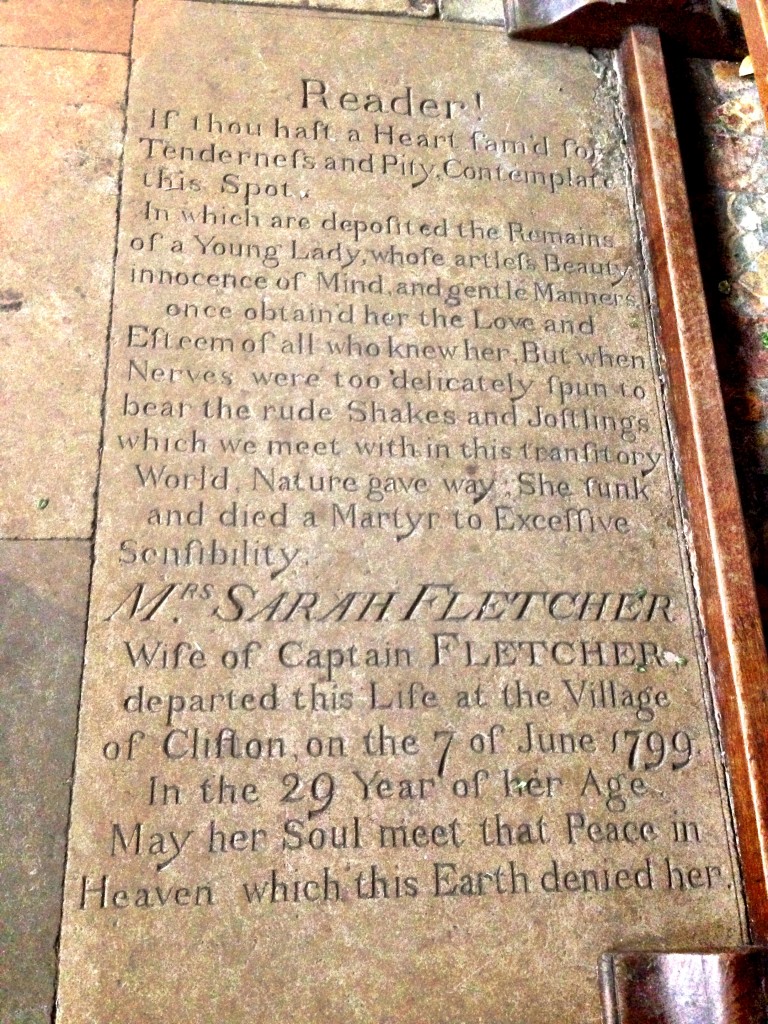 Reader!
If thou haſt a Heart fam'd for
Tenderneſs and Pity, Contemplate
this Spot.
In which are depoſited the Remains
of a Young Lady, whoſe artleſs Beauty,
innocence of Mind, and gentle Manners,
once obtain'd her the Love and
Eſteem of all who knew her, But when
Nerves were too delicately ſpun to
bear the rude Shakes and Joſtlings
which we meet with in this tranſitory
World, Nature gave way; She ſunk
and died a Martyr to Exceſſive
Senſibility.
M.RS SARAH FLETCHER
Wife of Captain FLETCHER,
departed this Life at the Village
of Clifton, on the 7 of June 1799.
In the 29 Year of her Age.
May her Soul meet that Peace in
Heaven which this Earth denied her.